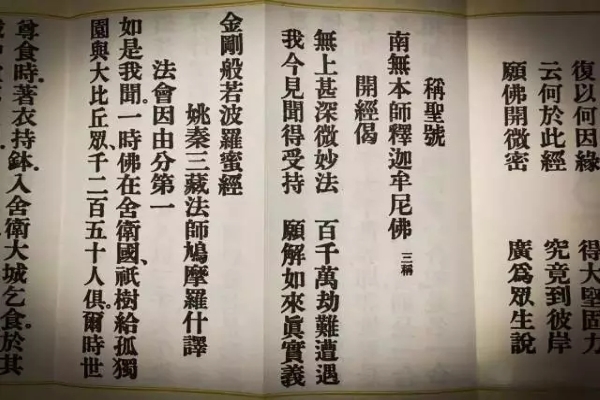 復以何因緣　得大堅固力
云何於此經　究竟到彼岸
願佛開微密　廣爲眾生說
稱聖號
南無本師釋迦牟尼佛 三稱
開經偈
無上甚深微妙法　百千萬劫難遭遇
我今見聞得受持　願解如來眞實義
金剛般若波羅蜜經
姚秦三藏法師鳩摩羅什譯
法會因由分第一
如是我聞。一時佛在舍衛國、祇樹給孤獨
園與大比丘眾、千二百五十人俱。爾時世
尊食時。著衣持鉢。入舍衛大城乞食。於其